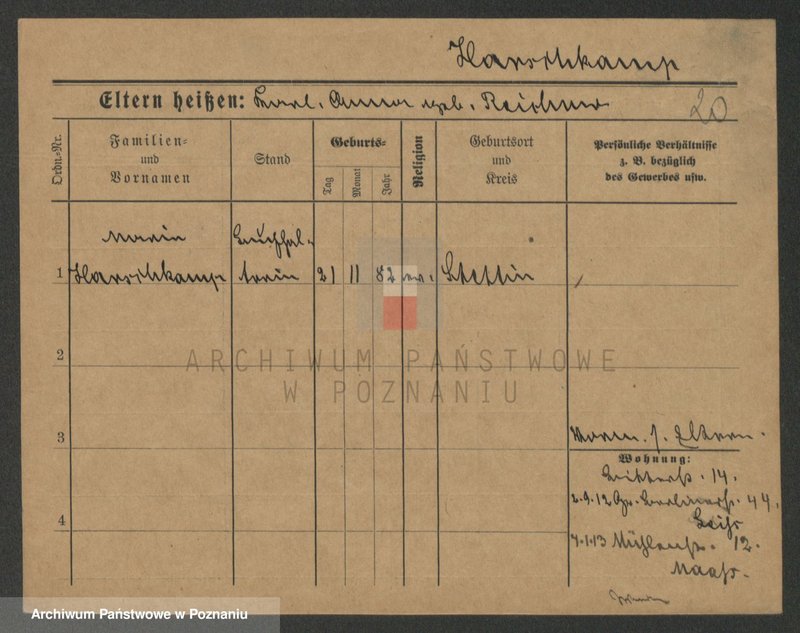 Harschkamp
Eltern heißen: Karl. Anna geb. Reichner
20
Ordn.=Nr.
Familien=
und
Vornamen
Stand
Geburts=
Tag
Monat
Jahr
Religion
Geburtsort
und
Kreis
Persönliche Verhältnisse
z. B. bezüglich
des Gewerbes usw.
Maria
Buchhal-
1 Harschkamp terin 21 11 82 ev. Stettin
2
3
Eltern.
Wohnung:
Ritterstr. 14.
2.9.12 Berlinerstr. 44.
7.1.13 Mühlenstr. 12.
Maass.
4
ARCHIWUM PAŃSTWOWE
W POZNANIU
Archiwum Państwowe w Poznaniu